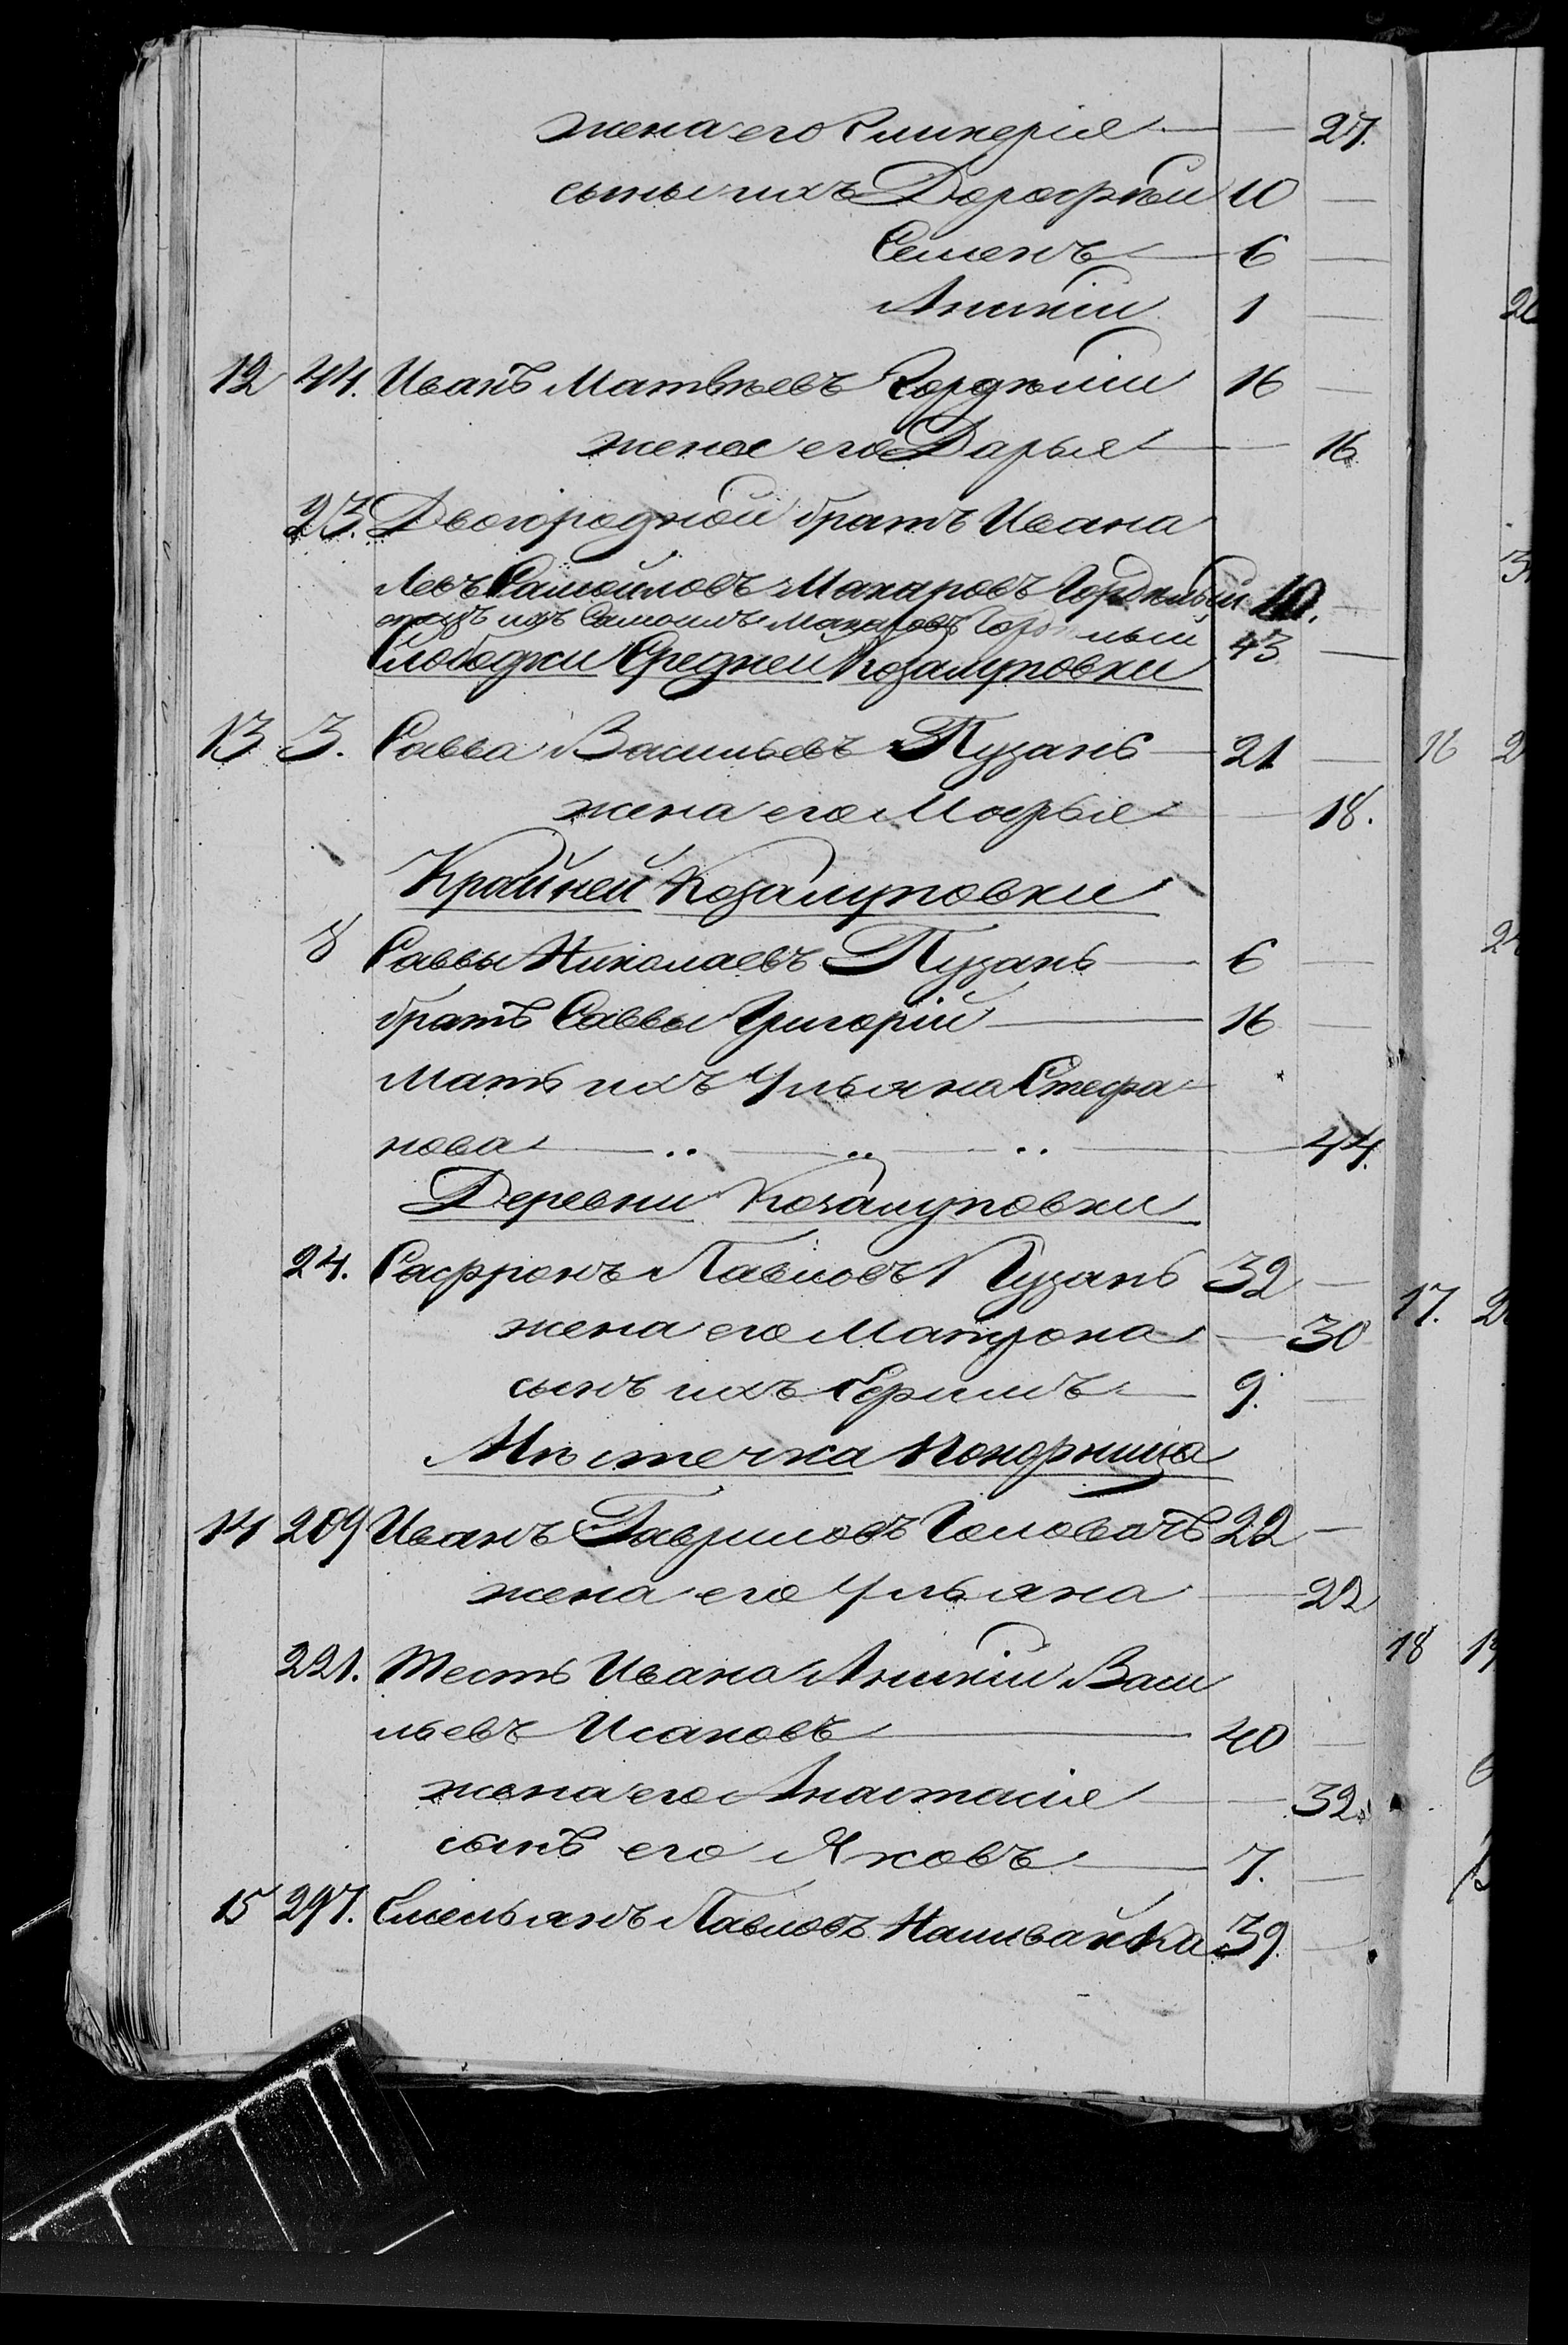 жена его Гликерія — — 27.
сыны ихъ Дорофѣй 10 —
Семенъ — 6 —
Аникій 1 —
12 44. Иванъ Матвѣевъ Гордѣйш 16 —
жена его Дарья — — 16
23. Двоюродной братъ Ивана
Левъ Самойловъ Макаровъ 10. —
отецъ ихъ Самоилъ Макаровъ 43 —
Слободки Средней Козалуповки
13 3. Савва Васильевъ Пузань — 21 —
жена его Марья — 18.
Крайней Козалуповки
8 Саввы Николаевъ Пузань — 6 —
братъ Саввы Григорій — 16 —
Мать ихъ Ульяна Стефа
нова — .. — .. — .. — 44.
Деревни Козалуповки
24. Сафронъ Павловъ Пузань 32 —
жена его Матрона — 30
сынъ ихъ Ефимъ — 9. —
Мѣстечка Понорница
14 209 Иванъ Гавриловъ Головачь 22 —
жена его Ульяна — 22
221. Тесть Ивана Аникій Васи
льевъ Исаковъ — 40 —
жена его Анастасія — — 32.
сынъ его Яковъ — 7. —
15 297. Емельянъ Павловъ Наливайка 39. —
16 2
17. 2
18